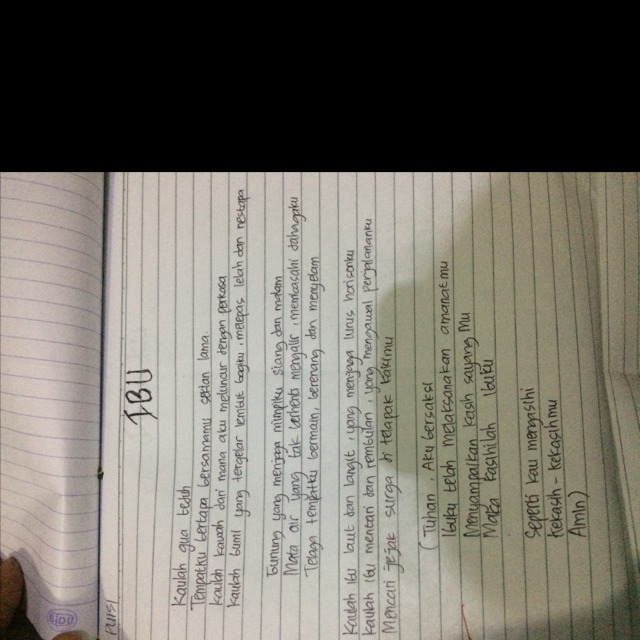 PUISI
IBU
Kaulah gua teduh
Tempatku bertapa bersamamu sekian lama
Kaulah kawah dari mana aku meluncur dengan perkasa
Kaulah bumi yang tergelar lembut bagiku melepas lelah dan nestapa
Gunung yang menjaga mimpiku siang dan malam
Mata air yang tak berhenti mengalir, membasahi dahagaku
Telaga tempatku bermain, berenang dan menyelam
Kaulah ibu laut dan langit, yang menjaga lurus horisonku
Kaulah ibu mentari dan rembulan, yang mengawal perjalananku
Mencari jejak surga di telapak kakimu
(Tuhan, Aku bersaksi
Ibuku telah melaksanakan amanat mu
Menyampaikan kasih sayang Mu
Maka kasihilah Ibuku
Seperti kau mengasihi
Kekasih-kekasihmu
Amin)